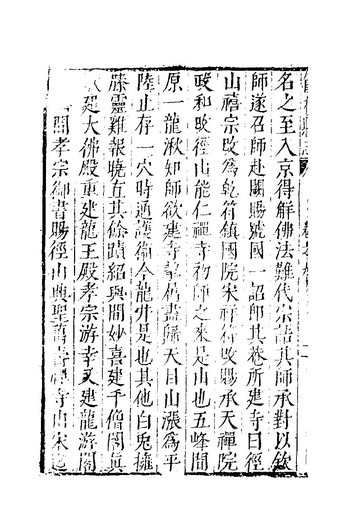 名之至入京得解佛法難代宗詰其師承對以欽
師遂召師赴闕賜號國一詔即其巷所建寺曰徑
山禧宗改為乾符鎮國院宋祥符改賜承天禪院
政和改徑山能仁禪寺初師之來是山也五峰間
原一龍湫知師欲建寺舉舊盡歸天目山漲為平
陸止存一穴時通護衛今龍井是也其他白兎擁
膝靈雞報曉有其餘蹟紹興間妙喜建千僧閣真
建大佛殿重建龍王殿孝宗游幸又建龍游閣
間孝宗御書賜徑山興聖萬壽禪寺由宋